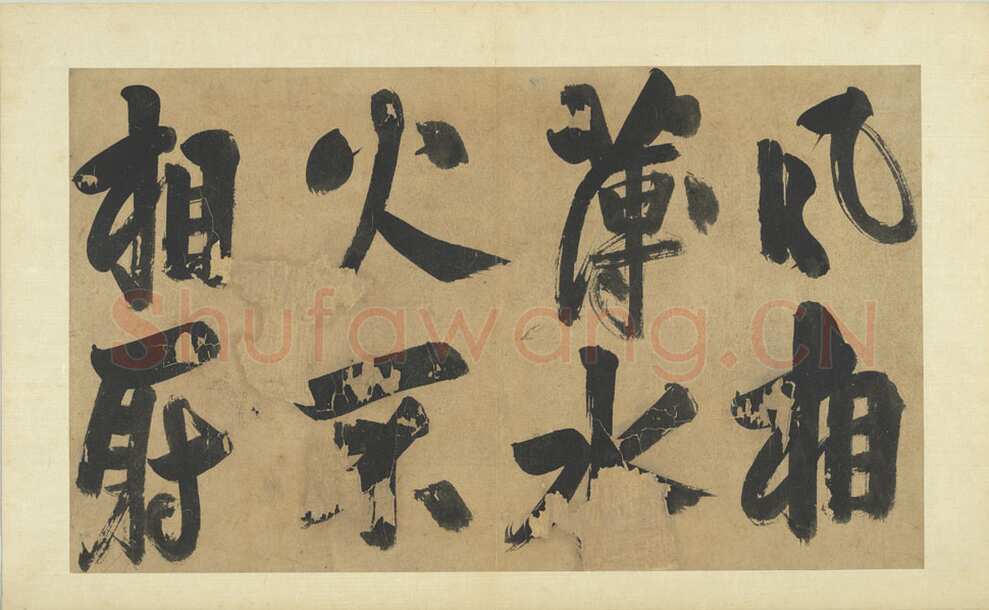 風相
薄水
火不
相射
Shufawang.CN